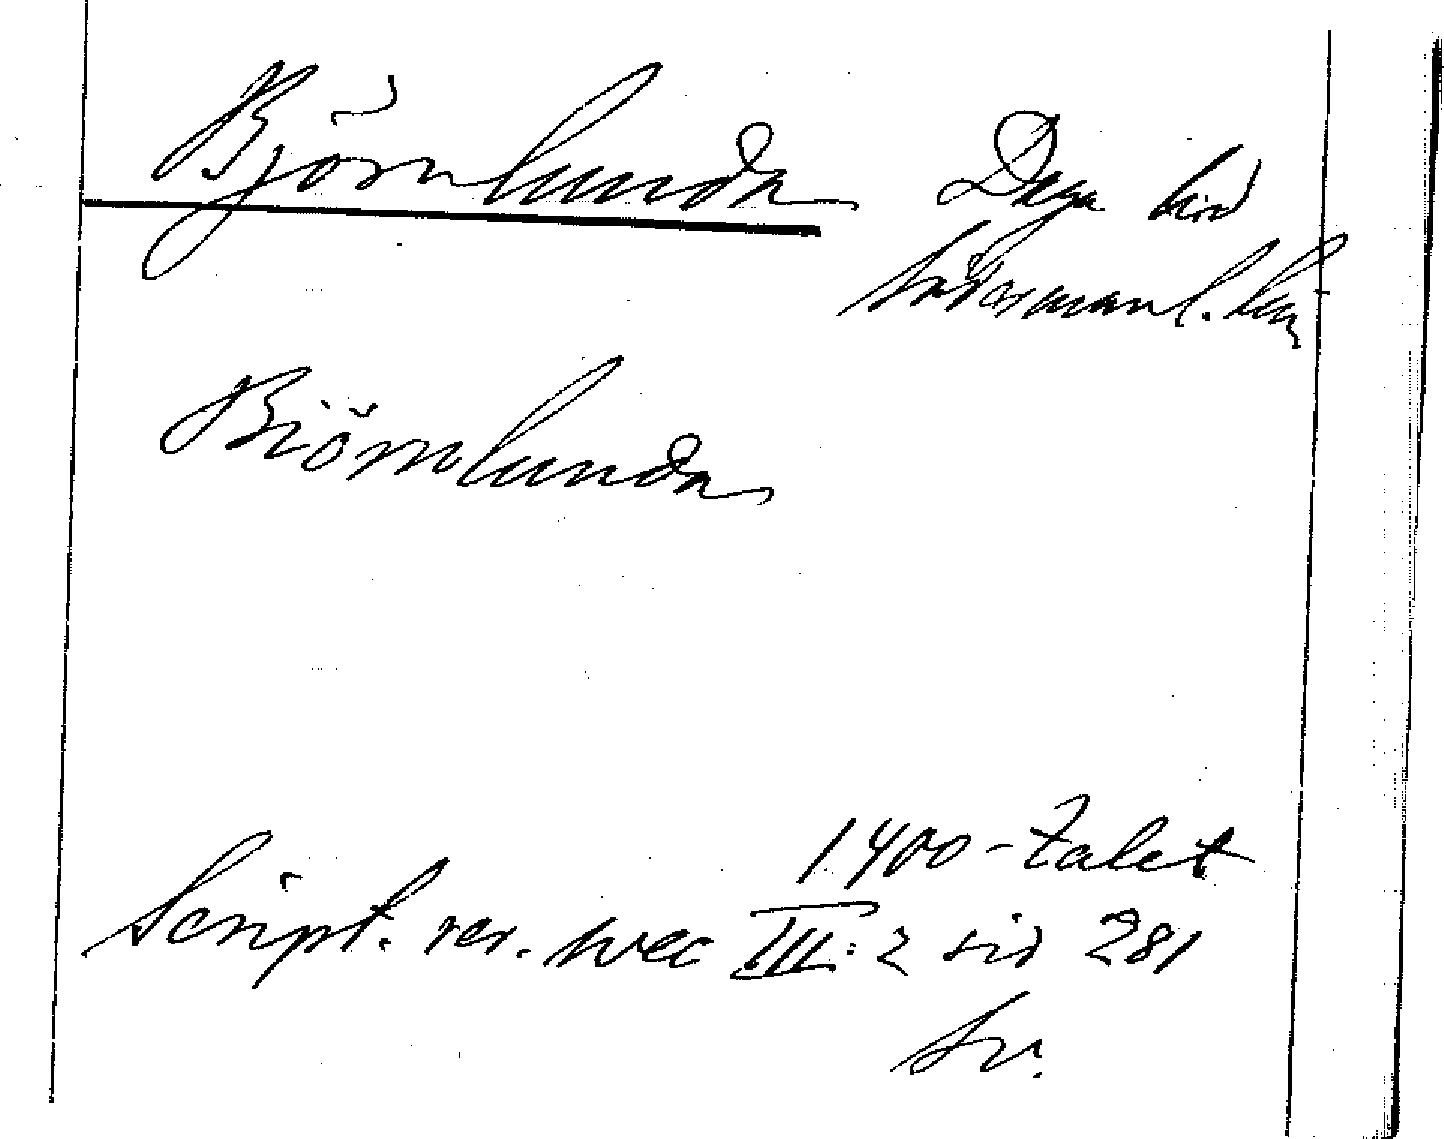 Björnlunda Daga hd
Södermanl. län
Biörnlunda
1400-talet
Script. rer. svec III:2 sid 281
Sv.